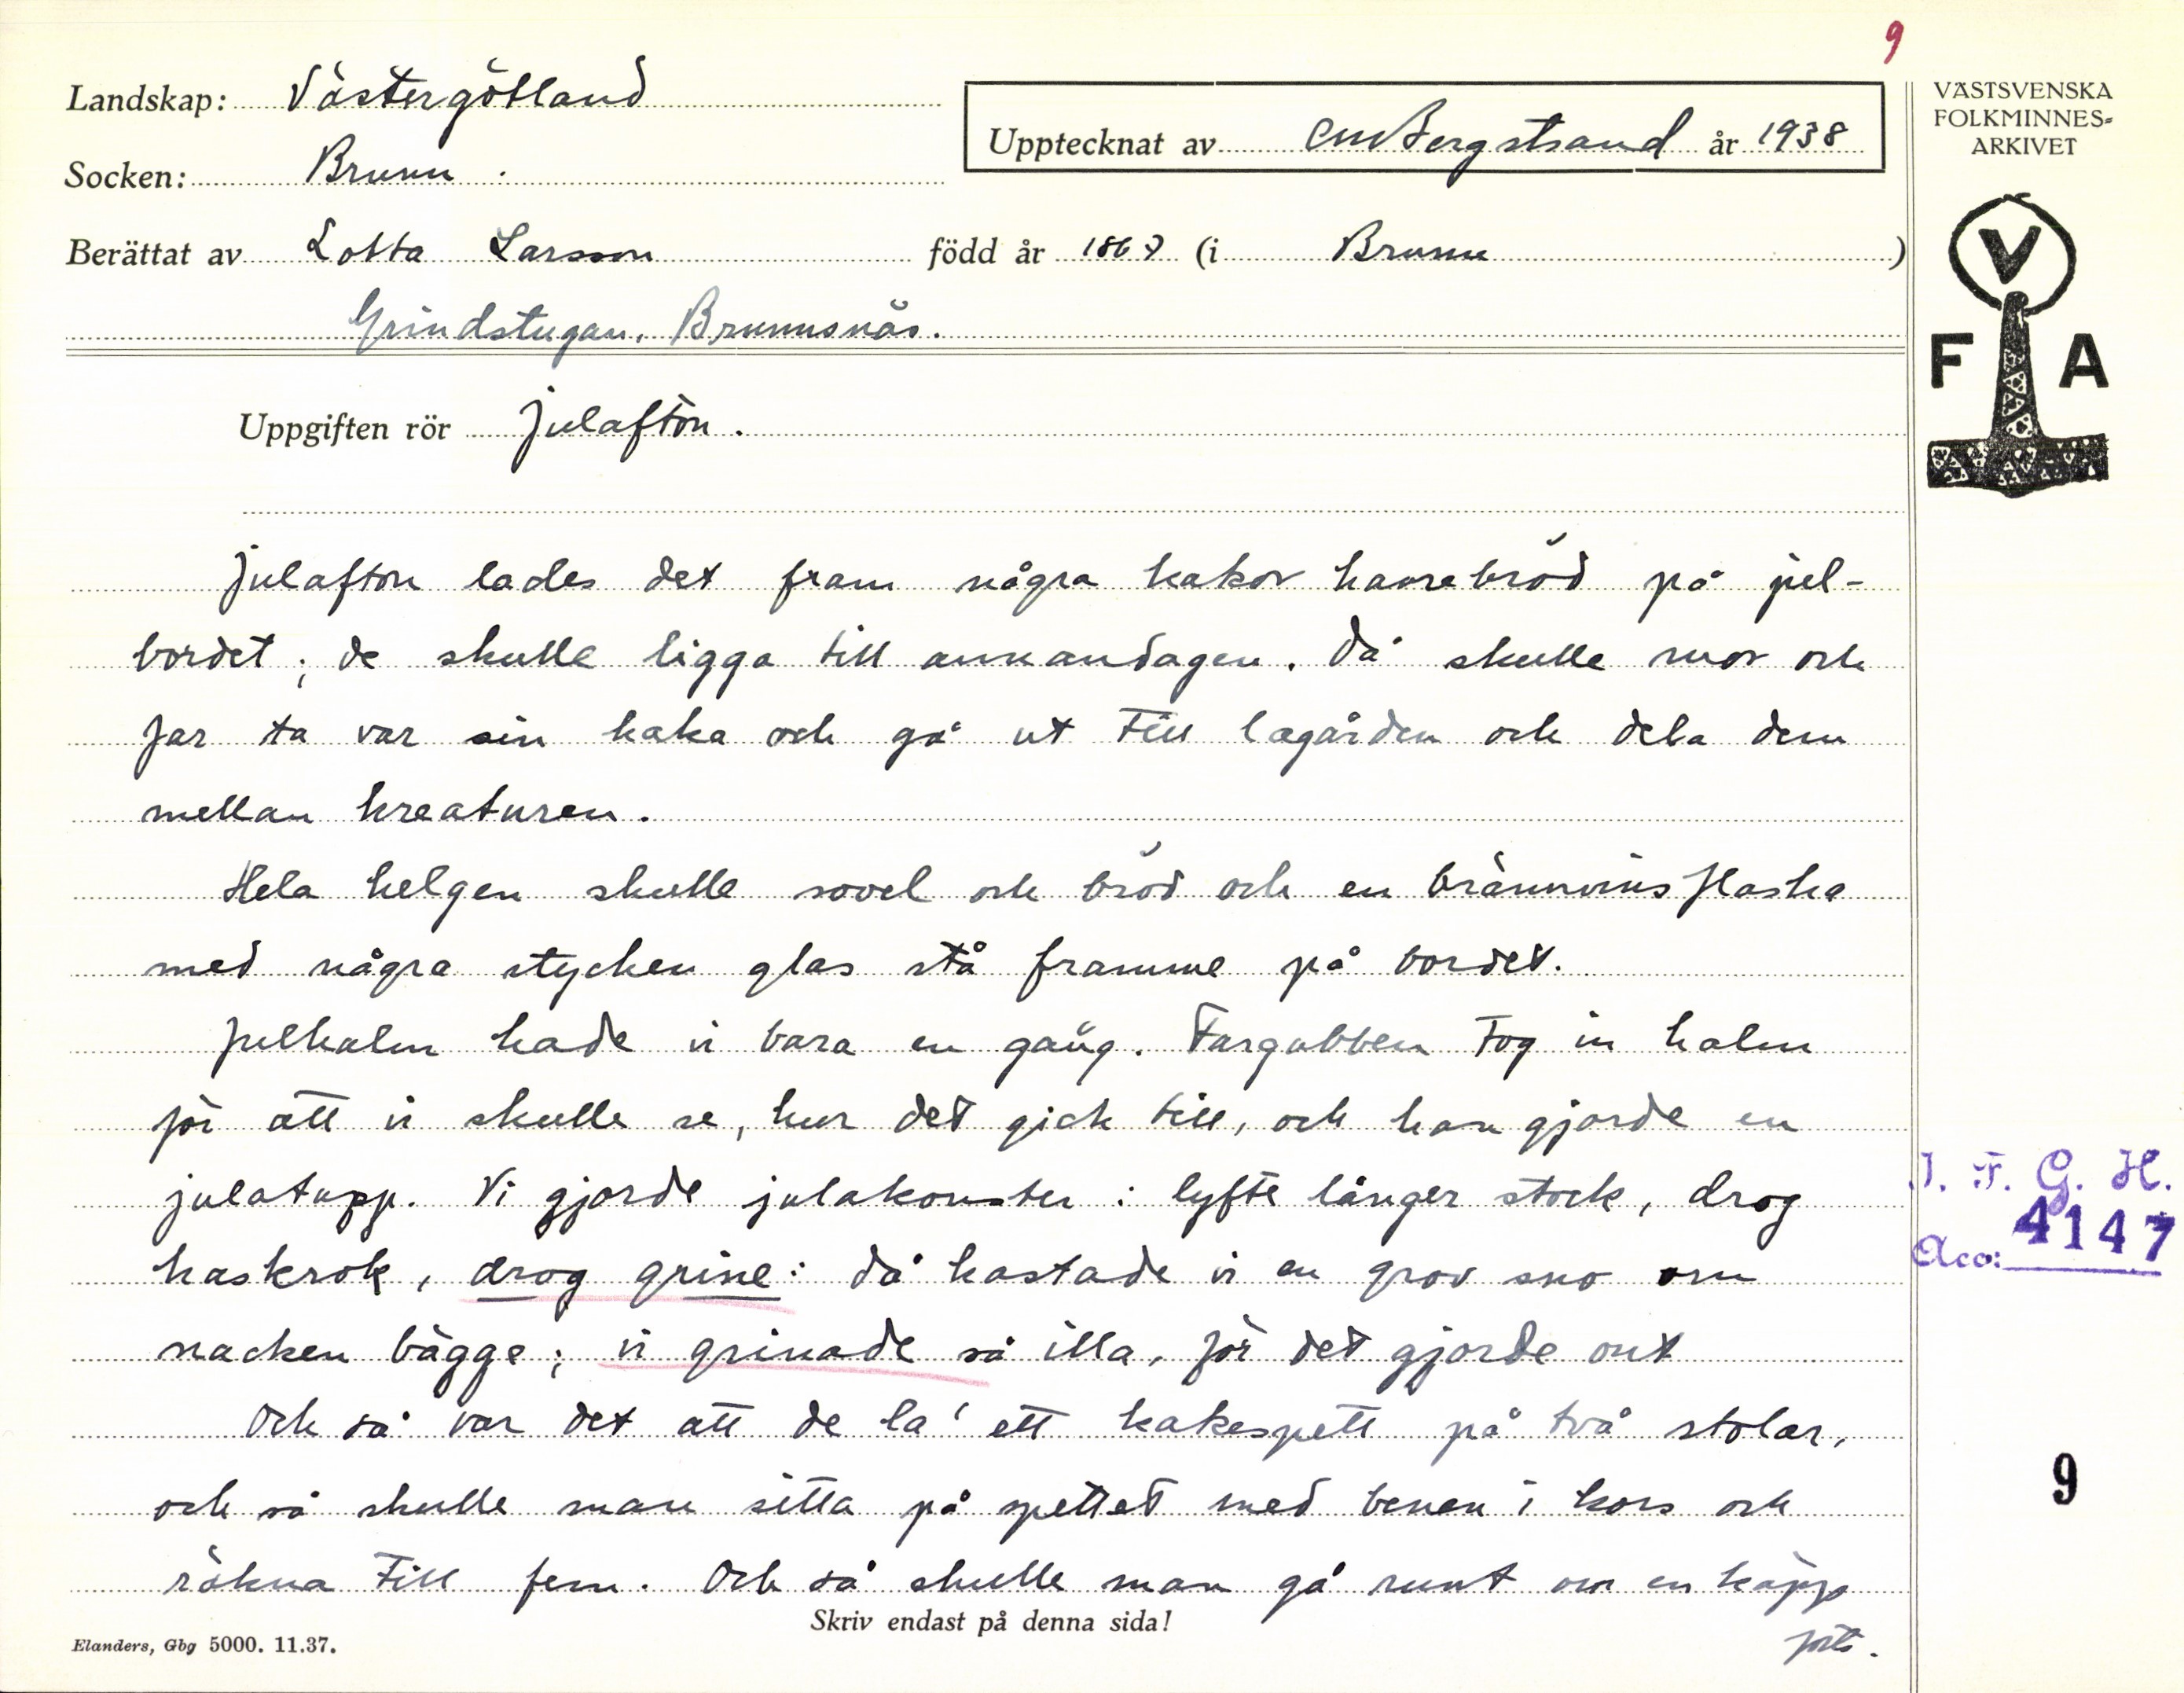 9
Landskap: Västergötland
Upptecknat av CMBergstrand år 1938
Socken: Brunn.
Berättat av Lotta Larsson född år 1867 (i Brunn)
Grindstugan, Brunnsnäs.
Uppgiften rör Julafton.
VÄSTSVENSKA
FOLKMINNES=
ARKIVET
V
F A
Julafton lades det fram några kakor havrebröd på jul-
bordet; de skulle ligga till annandagen. Då skulle mor och
far ta var sin kaka och gå ut till lagården och dela dem
mellan kreaturen.
Hela helgen skulle sovel och bröd och en brännvinsflaska
med några stycken glas stå framme på bordet.
Julhalm hade vi bara en gång. Fargubben tog in halm
för att vi skulle se, hur det gick till, och han gjorde en
julatupp. Vi gjorde julakonster: lyfte långer stock, drog
haskrok, drog grine: då kastade vi en grov sno om
nacken bägge; vi grinade så illa, för det gjorde ont
Och så var det att de la' ett kakespett på två stolar,
och så skulle man sitta på spettet med benen i kors och
räkna till fem. Och så skulle man gå runt om en käpp
forts.
Skriv endast på denna sida!
Elanders, Gbg 5000. 11.37.
I. F. G. H.
Acc: 4147
9